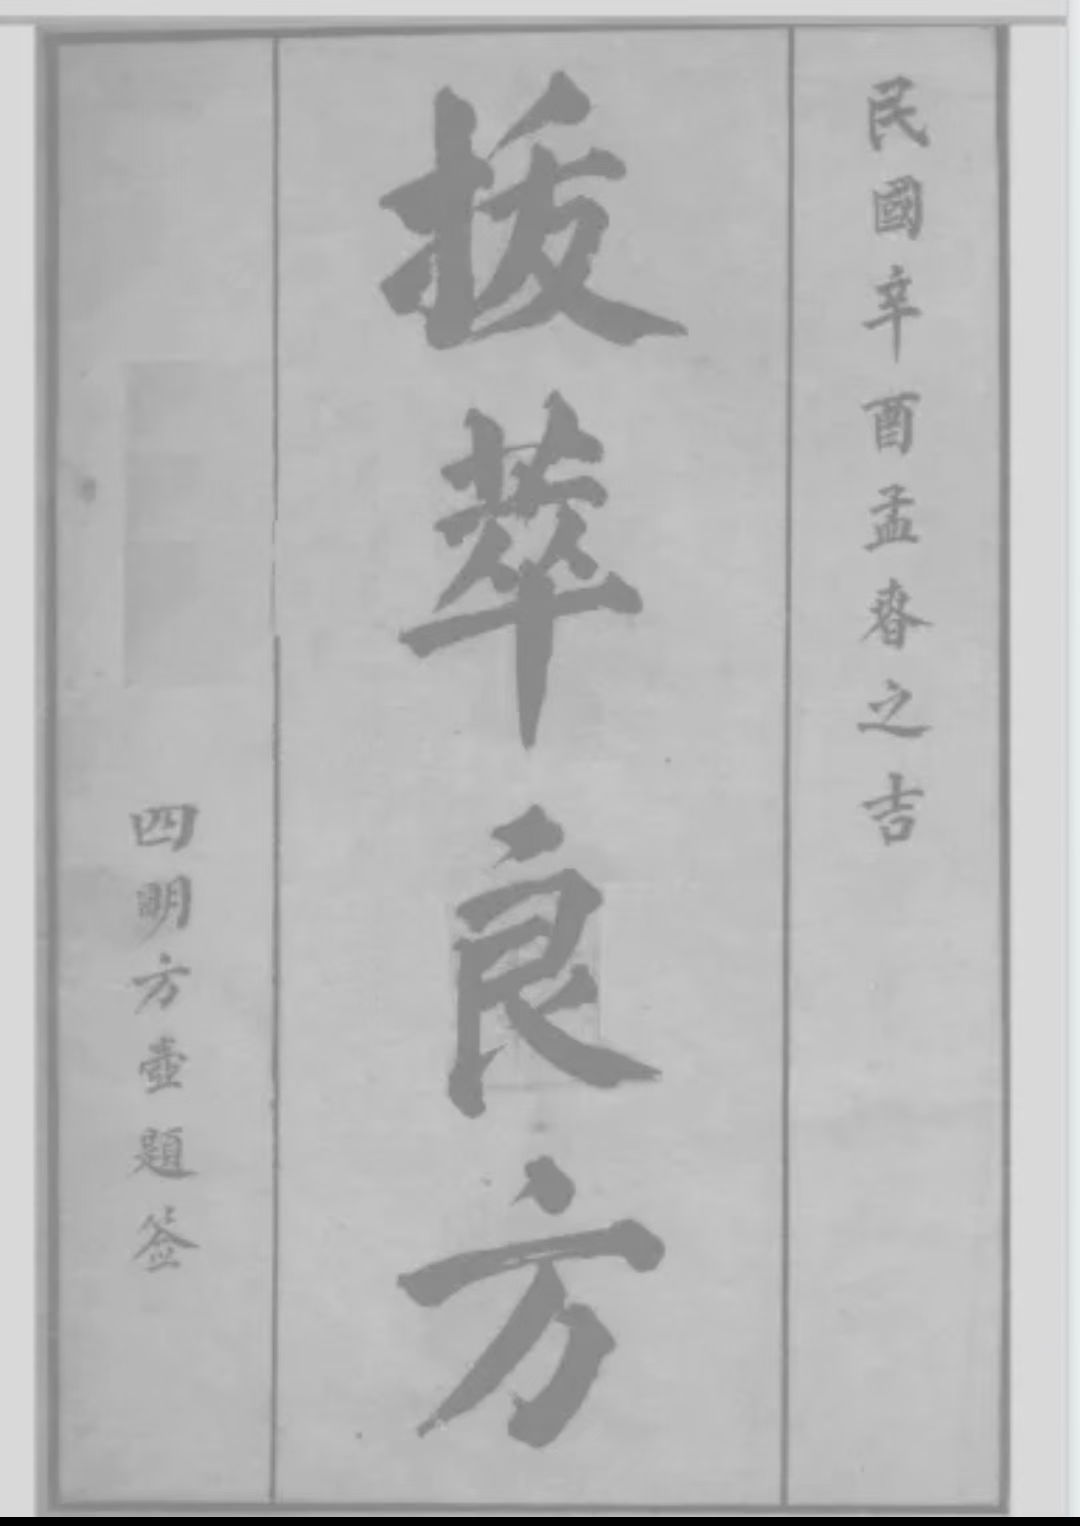 民國辛酉孟春之吉
拔萃良方
四明方壺題簽